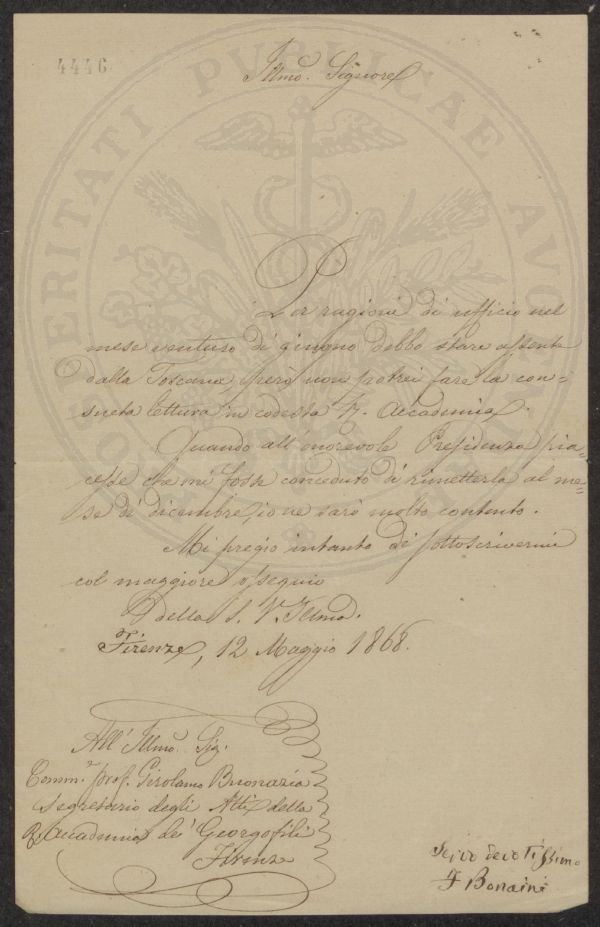 4446
Illmo. Signore
Per ragioni di ufficio nel
mese venturo di giugno debbo stare assente
dalla Toscana, però non potrei fare la con-
sueta lettura in codesta R. Accademia.
Quando all'onorevole Presidenza pia-
cesse che mi fosse conceduto di rimetterla al me-
se di dicembre, io ne sarò molto contento.
Mi pregio intanto de sottoscrivermi
col maggiore ossequio
della S. V. Illma.
Firenze, 12 Maggio 1868.
All' Illmo. Sig.
Comm.r prof. Girolamo Buonazia
Segretario degli Atti della
R. Accademia de' Georgofili
Firenze
Servo devotissimo
F Bonaini
PROSPERITATI PUBLICAE AUGENDAE